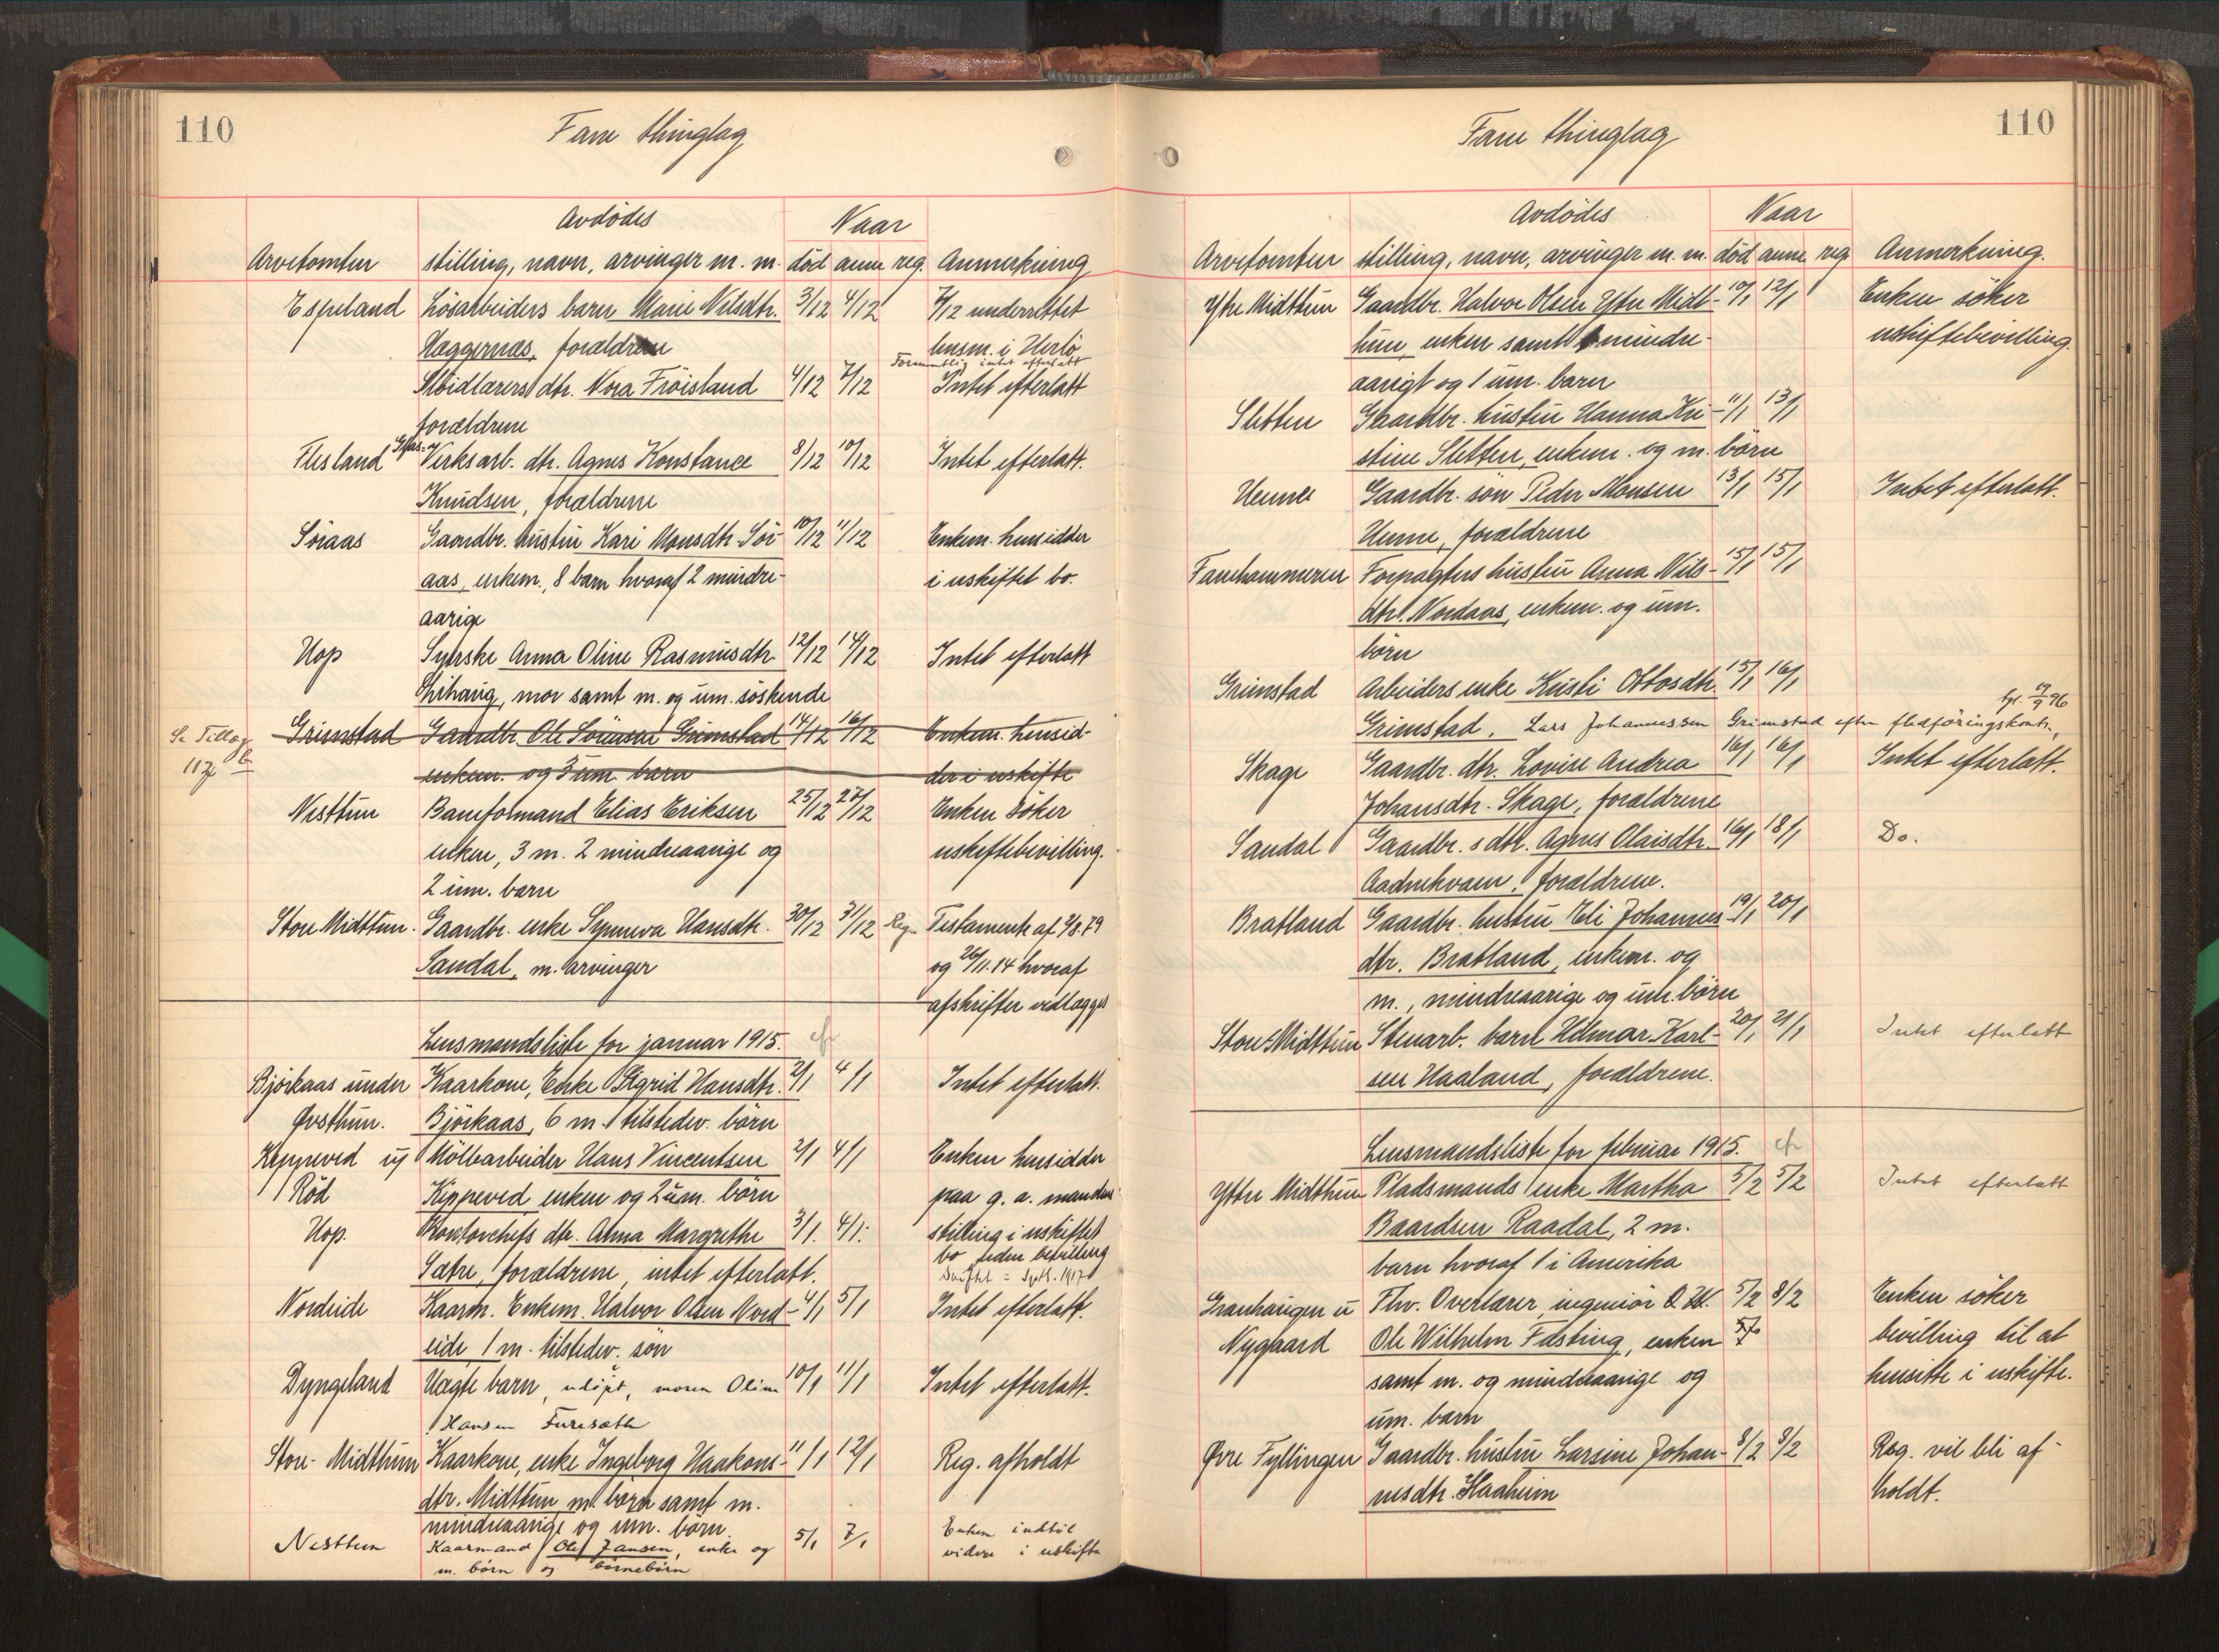 110
Fane thinglag
Avdødes
Naar
Arvetomten stilling, navn, arvinger m. m. död anm reg. Anmerkning
Espeland Lösarbeiders barn Marie Nilsdtr. 3/12 4/12 7/12 underrettet
Hæggernæs, forældrene lensm. i Herlö
Formentlig intet efterlatt
Slöidlærers dtr. Nora Fröisland 4/12 7/12 Intet efterlatt
forældrene
Flesland Verksarb. dtr. Agnes Konstance 8/12 10/12 Intet efterlatt.
Knudsen, forældrene
Söraas Gaardbr. hustru Kari Monsdtr. Sör- 10/12 11/12 Enkem. hensidder
aas, enkem., 8 barn hvoraf 2 mindre- i uskiftet bo.
aarige
Hop Syerske Anna Oline Rasmusdtr 12/12 14/12 Intet efterlatt
mor samt m. og um. söskende
Se Tillæg
117 b
Grimstad Gaardbr. Ole Sörensen Grimstad 14/12 16/12 Enkem. hensid-
enkem. og 3 um. barn der i uskifte
Nesttun Baneformand Elias Eriksen 25/12 27/12 Enken söker
enken, 3 m. 2 mindreaarige og uskiftebevilling.
2 um. barn
Store Midttun. Gaardbr. enke Synneva Hansdtr. 30/12 31/12 Reg. Testamente af 2/8.79
Sandal, m. arvinger og 26/11.14 hvoraf
afskrifter vedlægges
Lensmandsliste for januar 1915. cfr
Björkaas under Kaarkone, Enke Sigrid Hansdtr. 2/1 4/1 Intet efterlatt.
Øvsthun. Björkaas, 6 m. tilstedev. börn
Kippeved u/ Möllearbeider Hans Vincentsen 2/1 4/1 Enken hensidder
Röd Kippeved enken og 2 um. börn paa g. a. mandens
Hop. Kontorchefs dtr. Alma Margrethe 3/1. 4/1. stilling i uskiftet
bo uden bevilling
Skiftet = Sptb. 1917
Sætre, forældrene, intet efterlatt.
Nordeide Kaarm. Enkem. Halvor Olsen Nord- 4/1 5/1 Intet efterlatt.
eide 1 m. tilstedev. sön
Dyngeland Uægte barn, udöpt, moren Oline 10/1 11/1 Intet efterlatt.
Hansen Furesæth
Store- Midthun Kaarkone, enke Ingeborg Haakons- 11/1 12/1 Reg. afholdt
dtr. Midttun m. börn samt m.
mindreaarige og um. börn.
Nesttun Kaarmand Ole Jansen, enke og 5/1 7/1 Enken indtil
m. börn og börnebörn videre i uskifte
110
Fane thinglag
Avdödes
Naar
Arvetomten stilling, navn, arvinger m. m. död anm reg Anmerkning.
Ytre Midttun Gaardbr. Halvor Olsen Ytre Midt- 10/1 12/1 Enken söker
hun enken samt 1 mindre- uskiftebevilling.
aarigt og 1 um. barn
Sletten Gaardbr. hustru Hanna Kri- 11/1 13/1
stine Sletten, enkem. og m. börn
Henne Gaardbr. sön Peder Monsen 13/1 15/1 Intet efterlatt.
Henne, forældrene
Fanehammeren Forpagters hustru Anna Nils- 15/1 15/1
dtr. Nordaas, enkem. og um.
börn
Grimstad Arbeiders enke Kristi Ottosdtr. 15/1 16/1
Grimstad, Lars Johannessen Grimstad efter fledföringskontr., tgl. 19/9 96
Skage Gaardbr. dtr. Lovise Andrea 16/1 16/1 Intet efterlatt.
Johansdtr. Skage, forældrene
Sandal Gaardbr. s dtr. Agnes Olaisdtr. 16/1 18/1 Do.
Aadnekvam, forældrene.
Bratland Gaardbr. hustru Eli Johannes- 19/1 20/1
dtr. Bratland, enkem. og
m., mindreaarige og um. börn
Store Midttun Stenarb. barn Hilmar Karl- 20/1 21/1 Intet efterlatt
sen Haaland, forældrene.
Lensmandsliste for februar 1915. cfr
Ytre Midthun Pladsmands enke Martha 5/2 5/2 Intet efterlatt
Baardsen Raadal, 2 m.
barn hvoraf 1 i Amerika
Granhaugen u Fhv. Overlærer, ingeniör O. W. 5/2 8/2 Enken söker
Nygaard Ole Wilhelm Fasting, enken bevilling til at
samt m. og mindreaarige og hensitte i uskifte.
um. barn
Øvre Fyllingen Gaardbr. hustru Larsine Johan- 8/2 9/2 Reg. vil bli af-
nesdtr. Haaheim holdt.